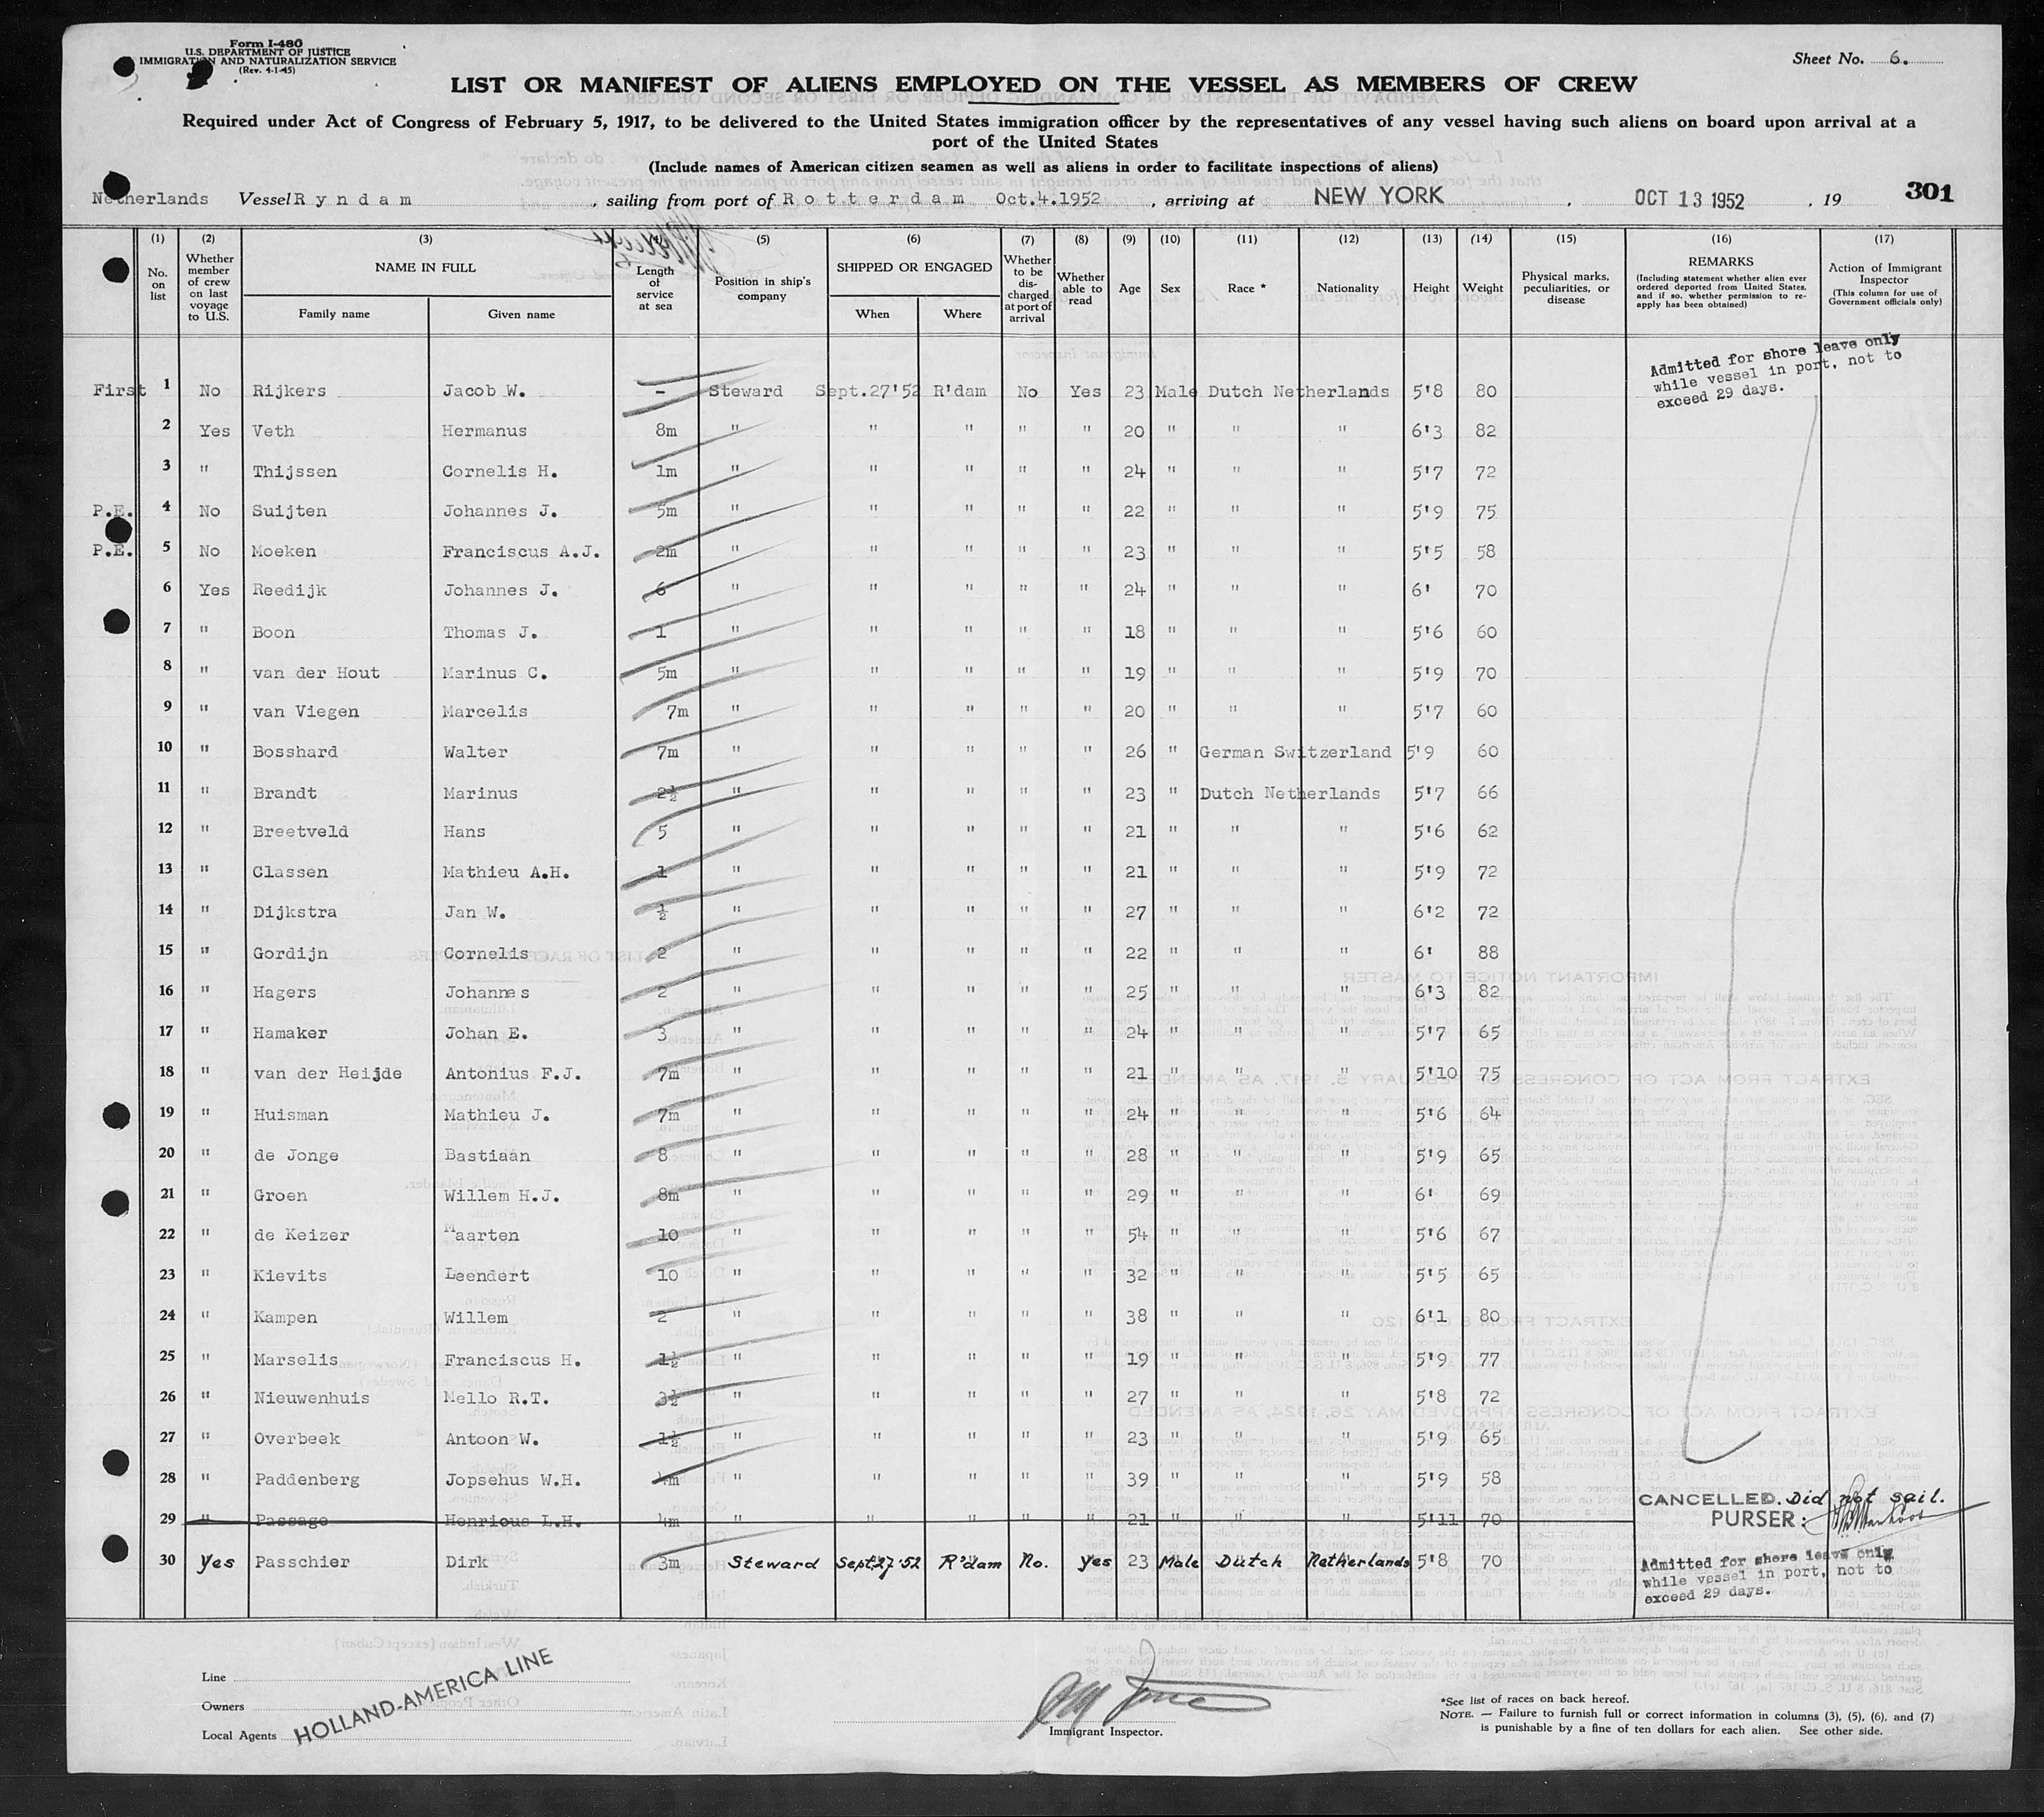 Form I-480
U.S. DEPARTMENT OF JUSTICE
IMMIGRATION AND NATURALIZATION SERVICE
(Rev. 4-1-45)
Sheet No. 6.
LIST OR MANIFEST OF ALIENS EMPLOYED ON THE VESSEL AS MEMBERS OF CREW
Required under Act of Congress of February 5, 1917, to be delivered to the United States immigration officer by the representatives of any vessel having such aliens on board upon arrival at a
port of the United States
(Include names of American citizen seamen as well as aliens in order to facilitate inspections of aliens)
Netherlands Vessel Ryndam, sailing from port of Rotterdam Oct.4.1952, arriving at NEW YORK, OCT 13 1952, 19 301
(1) (2) (3) (4) (5) (6) (7) (8) (9) (10) (11) (12) (13) (14) (15) (16) (17)
No. on list
Whether member of crew on last voyage to U.S.
NAME IN FULL
Family name
Given name
Length of service at sea
Position in ship's company
SHIPPED OR ENGAGED
When
Where
Whether to be discharged at port of arrival
Whether able to read
Age
Sex
Race *
Nationality
Height
Weight
Physical marks, peculiarities, or disease
REMARKS
(Including statement whether alien ever ordered deported from United States, and if so, whether permission to re-apply has been obtained)
Action of Immigrant Inspector
(This column for use of Government officials only)
Admitted for shore leave only
while vessel in port, not to
exceed 29 days.
First 1 No Rijkers Jacob W. - Steward Sept.27'52 R'dam No Yes 23 Male Dutch Netherlands 5'8 80
2 Yes Veth Hermanus 8m " " " " " 20 " " " 6'3 82
3 " Thijssen Cornelis H. 1m " " " " " 24 " " " 5'7 72
P.E. 4 No Suijten Johannes J. 5m " " " " " 22 " " " 5'9 75
P.E. 5 No Moeken Franciscus A.J. 2m " " " " " 23 " " " 5'5 58
6 Yes Reedijk Johannes J. 6 " " " " " 24 " " " 6' 70
7 " Boon Thomas J. 1 " " " " " 18 " " " 5'6 60
8 " van der Hout Marinus C. 5m " " " " " 19 " " " 5'9 70
9 " van Viegen Marcelis 7m " " " " " 20 " " " 5'7 60
10 " Bosshard Walter 7m " " " " " 26 " German Switzerland 5'9 60
11 " Brandt Marinus 2½ " " " " " 23 " Dutch Netherlands 5'7 66
12 " Breetveld Hans 5 " " " " " 21 " " " 5'6 62
13 " Classen Mathieu A.H. 1 " " " " " 21 " " " 5'9 72
14 " Dijkstra Jan W. ½ " " " " " 27 " " " 6'2 72
15 " Gordijn Cornelis 2 " " " " " 22 " " " 6' 88
16 " Hagers Johannes 2 " " " " " 25 " " " 6'3 82
17 " Hamaker Johan E. 3 " " " " " 24 " " " 5'7 65
18 " van der Heijde Antonius F.J. 7m " " " " " 21 " " " 5'10 75
19 " Huisman Mathieu J. 7m " " " " " 24 " " " 5'6 64
20 " de Jonge Bastiaan 8 " " " " " 28 " " " 5'9 65
21 " Groen Willem H.J. 8m " " " " " 29 " " " 6' 69
22 " de Keizer Maarten 10 " " " " " 54 " " " 5'6 67
23 " Kievits Leendert 10 " " " " " 32 " " " 5'5 65
24 " Kampen Willem 2 " " " " " 38 " " " 6'1 80
25 " Marselis Franciscus H. 1½ " " " " " 19 " " " 5'9 77
26 " Nieuwenhuis Mello R.T. 3½ " " " " " 27 " " " 5'8 72
27 " Overbeek Antoon W. 1½ " " " " " 23 " " " 5'9 65
28 " Paddenberg Jopsehus W.H. 4m " " " " " 39 " " " 5'9 58
CANCELLED. Did not sail.
29 " Passage Henricus L.H. 4m " " " " " 21 " " " 5'11 70 PURSER:
30 Yes Passchier Dirk 3m Steward Sept.27'52 R'dam No. Yes 23 Male Dutch Netherlands 5'8 70
Admitted for shore leave only
while vessel in port, not to
exceed 29 days.
Line
Owners
Local Agents
HOLLAND-AMERICA LINE
Immigrant Inspector.
*See list of races on back hereof.
NOTE. — Failure to furnish full or correct information in columns (3), (5), (6), and (7)
is punishable by a fine of ten dollars for each alien. See other side.